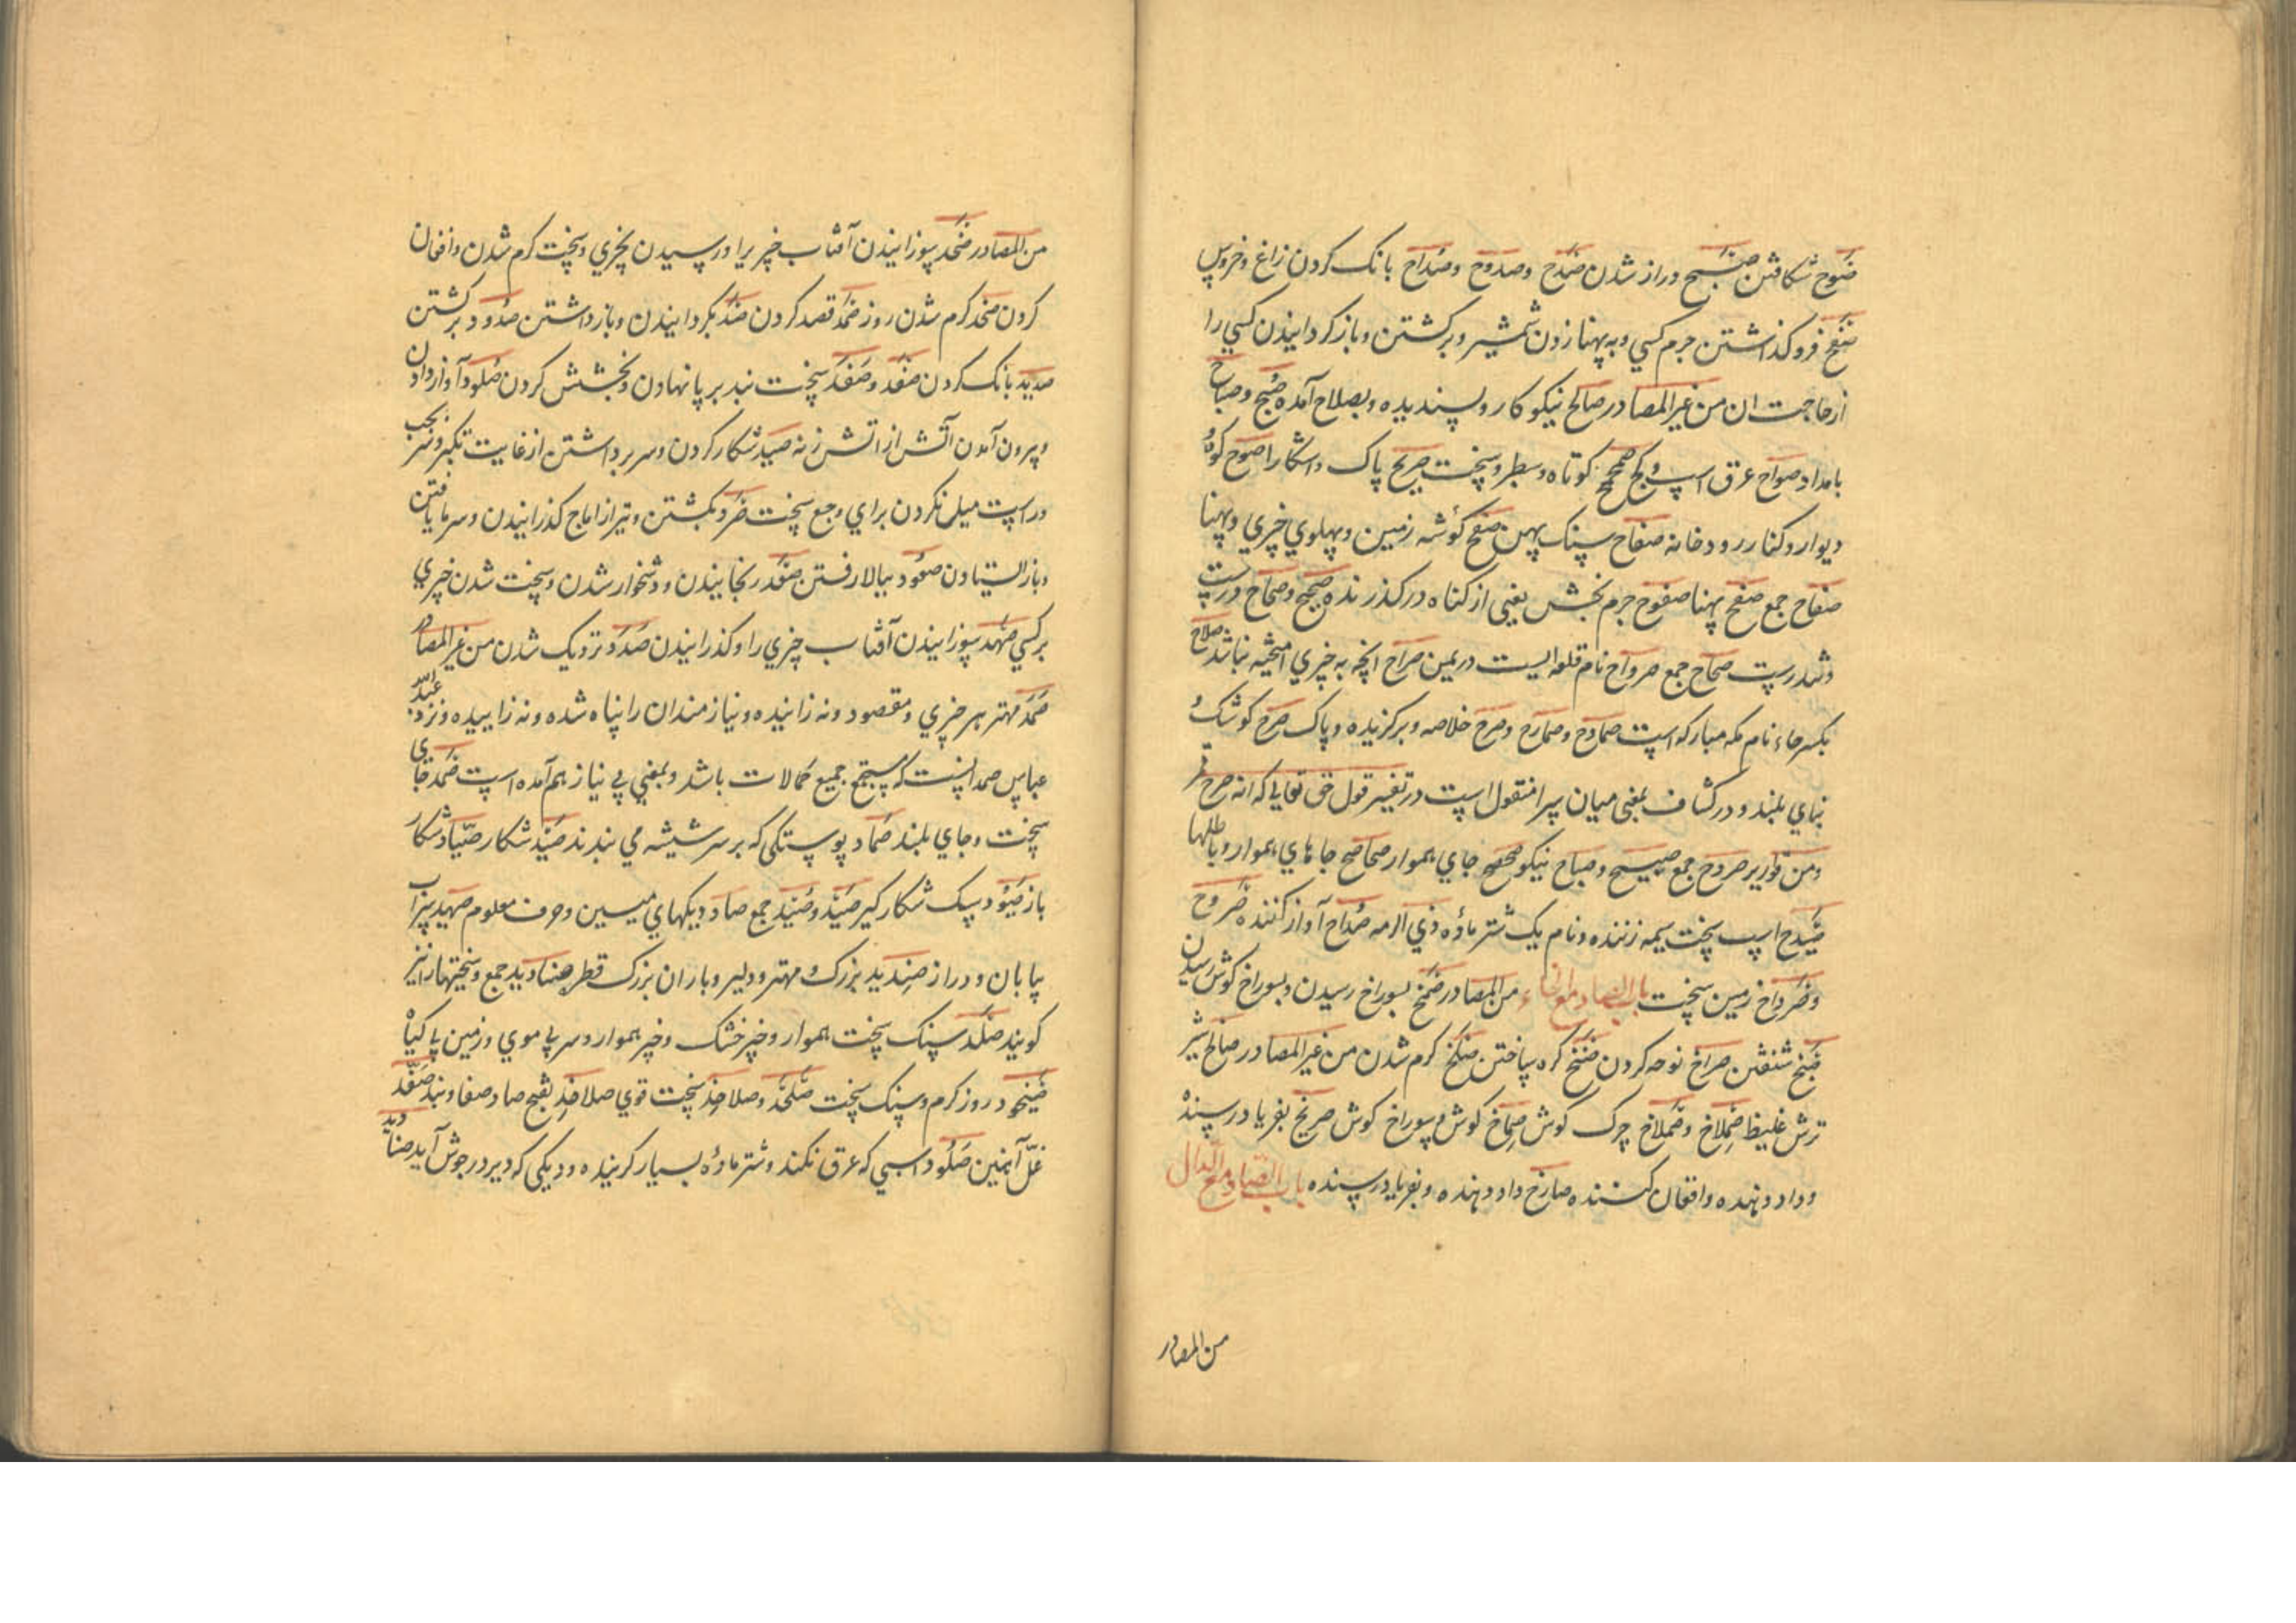 صَوح شکافتن صبح دراز شدن صَدح وصدوح وصُداح بانک کردن زاغ وخروس
صفح فرو کذاشتن جرم کسي وبه پهنا زدن شمشیر وبرکشتن وباز کردانیدن کسي را
ازحاجت ان من غیر المصادر صالح نیکو کار وپسندیده وبصلاح آمده صُبح وصباح
بامداد صواح عرق اسپ وکچ صمحمح کوتاه وسطبر وسخت صریح پاک واشکارا صوح کوه و
دیوار وکنار رودخانه صفاح سنک پهن صفح کوشه زمین وپهلوي چیزي وپهنا
صفاح جمع صفح پهنا صفوح جرم بخش یعنی از کناه درکذرنده صحیح وصحاح درست
وتندرست صحاح جمع صرواح نام قلعه ایست در یمن صراح انچه به چیزي امیخته نباشد صلاح
بکسر حاء نام مکه مبارکه است صمادح وصمارح وصرح خلاصه وبرکزیده وپاک صرح کوشک و
بناي بلند ودر کشاف بمعنی میان سرا منقول است در تفسیر قول حق تعالی که انه صرح ممرد
من قواریر صروح جمع صبیح وصباح نیکو صحصح جاي هموار صحاصح جاهاي هموار وباطلها
صَیدح اسپ سخت سیمه زننده ونام یک شتر ماده ذي الرمه صُداح آواز کننده صَروح
وصَرداح زمین سخت باب الصاد مع الخاء من المصادر صمخ بسوراخ رسیدن وبسوراخ کوش رسیدن
صَبخ شنفتن صراخ نوحه کردن کره ساختن کرم شدن من غیر المصادر صالخ شیر
ترش غلیظ صِملاخ وصَملاخ چرک کوش صِماخ کوش وسوراخ کوش صریخ بفریاد رسنده
وداد دهنده وافغان کننده صارخ داد دهنده وبفریاد رسنده باب الصاد مع الدال
من المصادر
من المصادر صَخد سوزانیدن آفتاب چیزیرا ورسیدن بچیزي وسخت کرم شدن وافغان
کردن صخد کرم شدن روز صمد قصد کردن صَد بکردانیدن وبازداشتن صُدود برکشتن
صدید بانک کردن صَفد وصَفَد سخت بند بر پا نهادن وبخشش کردن صُلود آواز دادن
وبیرون آمدن آتش از اتش زنه صَید شکار کردن وسر برداشتن از غایت تکبر ونیز بجب
وراست میل نکردن براي وجع سخت صَرد بکشتن وتیر از اماج کذرانیدن وسرما یافتن
وباز ایستادن صعُود ببالا رفتن صَعَد رنجانیدن ودشخوار شدن وسخت شدن چیزي
بر کسي صَهَد سوزانیدن آفتاب چیزي را وکذرانیدن صَدَد نزدیک شدن من غیر المصادر
صَمَد مهتر هر چیزي ومقصود ونه زاینده ونیازمندان را پناه شده ونه زاییده ونزد عبد الله
عباس صمد انست که مستجمع جمیع کمالات باشد وبمعنی بي نیاز هم آمده است صَمد جاي
سخت وجاي بلند صِماد پوستکي که بر سر شیشه مي بندند صَید شکار صیّاد شکار
باز صَیُود سک شکار کیر صَیَد وصُیَد جمع صاد دیکهاي میسین وحرف معلوم صَهید سراب
بیابان ودراز صِندید بزرک ومهتر ودلیر وباران بزرک قطره صنادید جمع وسختیها را نیز
کویند صَلد سنک سخت هموار وچیز خشک وچیز هموار وسر بي موي وزمین پاکیاه
صَیخود روز کرم وسنک سخت صَلَخد وصلاخِد سخت قوي صلاخِد بفتح صاد صفاد بند صَفَد
غلّ آهنین صَلُود اسبي که عرق نکند وشتر ماده بسیار کزیده ودیکی که دیر در جوش آید صنادید